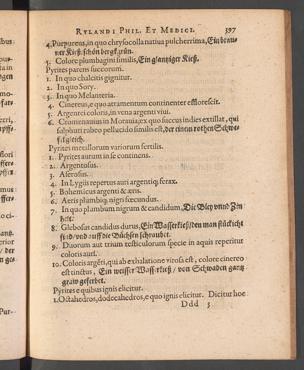 RVLANDI PHIL. ET MEDICI. 397
4. Purpureus, in quo chrysocolla nativa pulcherrima, Ein brau-
ner Kieß. schön bergkgrün.
5. Colore plumbagini similis, Ein glantziger Kieß.
Pyrites parens succorum.
1. In quo chalcitis gignitur.
2. In quo Sory.
3. In quo Melanteria.
4. Cinereus, è quo atramentum continenter efflorescit.
5. Argentei coloris, in vena argenti vivi.
6. Commenauius in Morauia, ex quo succus indies extillat, qui
sulphuri rubeo pellucido similis est, der einem rothen Schwe-
fel gleich.
Pyrites metallorum variorum fertilis.
1. Pyrites aurum in se continens.
2. Argentosus.
3. Aerosus.
4. In Lygiis repertus auri argentiq; ferax.
5. Bohemicus argenti & æris.
6. Aeris plumbiq; nigri fœcundus.
7. In quo plumbum nigrum & candidum, Die Bley vnnd Zin
helt.
8. Globosus candidus durus, Ein Wasserkieß / den man stückicht
find vnd auff die Büchsen schraubet.
9. Duorum aut trium testiculorum specie in aquis reperitur
coloris auri.
10. Coloris argẽti, qui ab exhalatione virosa est, colore cinereo
est tinctus, Ein weisser Wasserkieß / von Schwaden gantz
graw geferbet.
Pyrites è quibus ignis elicitur.
1. Octahedros, dodecahedros, è quo ignis elicitur. Dicitur hoc
Ddd 3